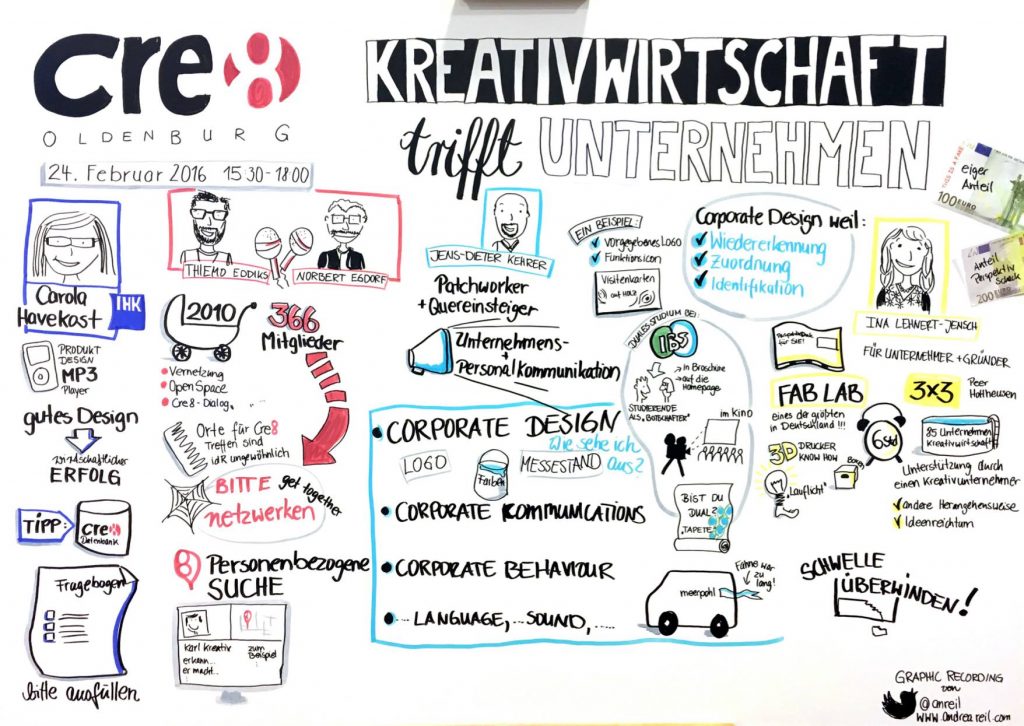 cre8
OLDENBURG
24. Februar 2016 15:30-18:00
KREATIVWIRTSCHAFT
trifft UNTERNEHMEN
THIS IS A FAKE
eiger
Anteil
100 EURO
Anteil
Perspektiv
Scheck
200 EURO
Carola
Havekost
IHK
PRODUKT
DESIGN
MP3
Player
gutes Design
wirtschaftlicher
ERFOLG
TIPP:
Cre8
Datenbank
Fragebogen
bitte ausfüllen
THIEMO EDDIKS
NORBERT EGDORF
2010
366
Mitglieder
Vernetzung
Open Space
Cre8-Dialog,
Orte für Cre8
Treffen sind
idR ungewöhnlich
BITTE get together
netzwerken
8 Personenbezogene
SUCHE
Karl Kreativ
erkann...
er macht...
zum
Beispiel
JENS-DIETER KEHRER
Patchworker
+ Quereinsteiger
Unternehmens-
+
Personalkommunikation
CORPORATE DESIGN
Wie sehe ich
aus?
LOGO
Farben
MESSESTAND
CORPORATE KOMMUNICATIONS
CORPORATE BEHAVIOUR
... LANGUAGE,... SOUND,...
EIN BEISPIEL:
Vorgegebenes LOGO
Funktionsicon
Visitenkarten
auf HOLZ
DUALES STUDIUM BEI:
IBJ
→ in Broschüre
→ auf die
Homepage
STUDIERENDE
ALS "BOTSCHAFTER"
im Kino
BIST DU
DUAL
"TAPETE"
Fahne war
zu
lang!
meerpohl
Corporate Design weil:
Wiedererkennung
Zuordnung
Identifikation
INA LEHNERT-JENSCH
FÜR UNTERNEHMER + GRÜNDER
FAB LAB
eines der größten
in Deutschland !!!
3D DRUCKER
KNOW HOW
"Lauflicht"
6 Std
3x3
Peer
Holtheusen
85 Unternehmen
Kreativwirtschaft
Unterstützung durch
einen Kreativunternehmer
andere Herangehensweise
Ideenreichtum
SCHWELLE
ÜBERWINDEN!
GRAPHIC RECORDING
von
@anreil
www.andreareil.com